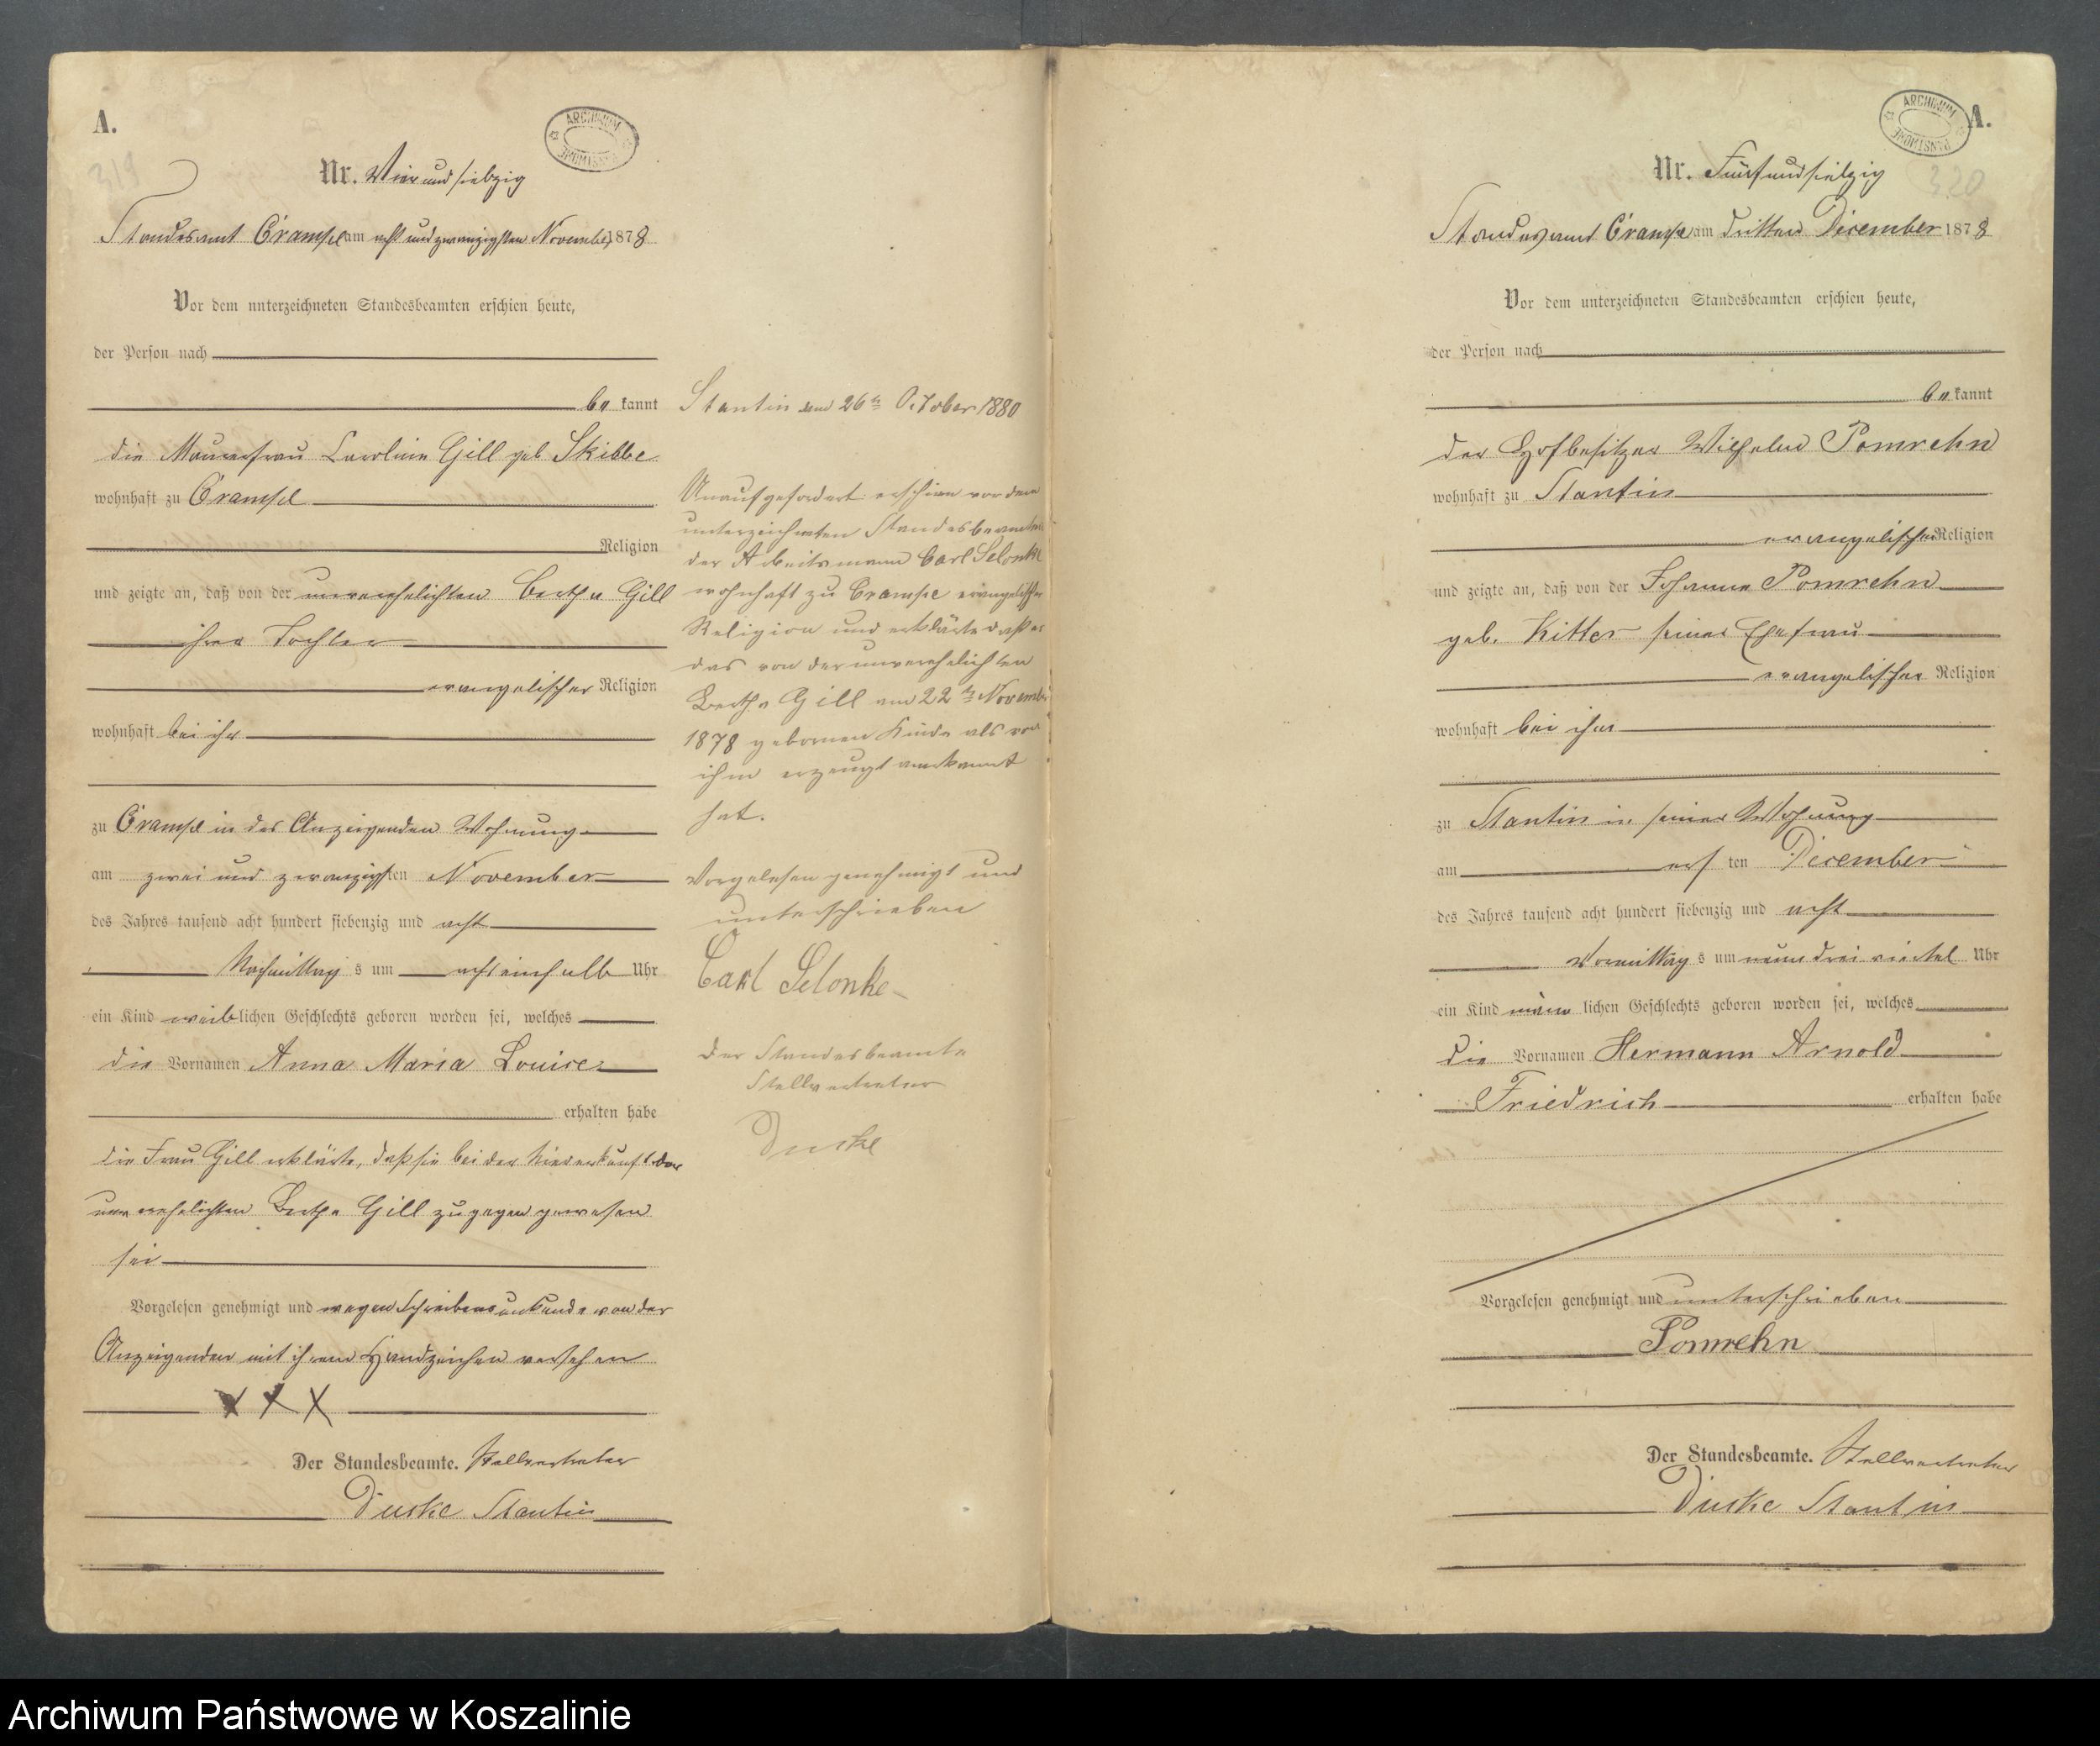 A.
319
ARCHIWUM
PAŃSTWOWE
Nr. Vierundsiebzig
Standesamt Crampe am acht und zwanzigsten November 1878
Vor dem unterzeichneten Standesbeamten erschien heute,
der Person nach
be kannt
die Maurerfrau Caroline Gill geb Skibbe
wohnhaft zu Crampe
Religion
und zeigte an, daß von der unverehelichten Bertha Gill
ihrer Tochter
evangelischer Religion
wohnhaft bei ihr
zu Crampe in der Anzeigenden Wohnung
am zwei und zwanzigsten November
des Jahres tausend acht hundert siebenzig und acht
Nachmittag s um acht einhalb Uhr
ein Kind weib lichen Geschlechts geboren worden sei, welches
die Vornamen Anna Maria Louise
erhalten habe
die Frau Gill erklärte, daß sie bei der Niederkunft der
unverehelichten Bertha Gill zugegen gewesen
sei
Vorgelesen genehmigt und wegen Schreibensunkunde von der
Anzeigenden mit ihrem Handzeichen versehen
X X X
Der Standesbeamte. Stellvertreter
Duske Stantin
Stantin den 26ten October 1880
Unaufgefordert erschien vor dem
unterzeichneten Standesbeamten
der Arbeitsmann Carl Selonke
wohnhaft zu Crampe evangelischer
Religion und erklärte daß er
das von der unverehelichten
Bertha Gill am 22ten November
1878 geborenen Kinde als von
ihm erzeugt anerkannt
hat.
Vorgelesen genehmigt und
unterschrieben
Carl Selonke
Der Standesbeamte
Stellvertreter
Duske
A.
320
ARCHIWUM
PAŃSTWOWE
Nr. Fünfundsiebzig
Standesamt Crampe am dritten December 1878
Vor dem unterzeichneten Standesbeamten erschien heute,
der Person nach
be kannt
der Hofbesitzer Wilhelm Pomrehn
wohnhaft zu Stantin
evangelischer Religion
und zeigte an, daß von der Johanne Pomrehn
geb. Kitter seiner Ehefrau
evangelischer Religion
wohnhaft bei ihm
zu Stantin in seiner Wohnung
am ers ten December
des Jahres tausend acht hundert siebenzig und acht
Vormittag s um neun drei viertel Uhr
ein Kind männ lichen Geschlechts geboren worden sei, welches
die Vornamen Hermann Arnold
Friedrich erhalten habe
Vorgelesen genehmigt und unterschrieben
Pomrehn
Der Standesbeamte. Stellvertreter
Duske Stantin
Archiwum Państwowe w Koszalinie